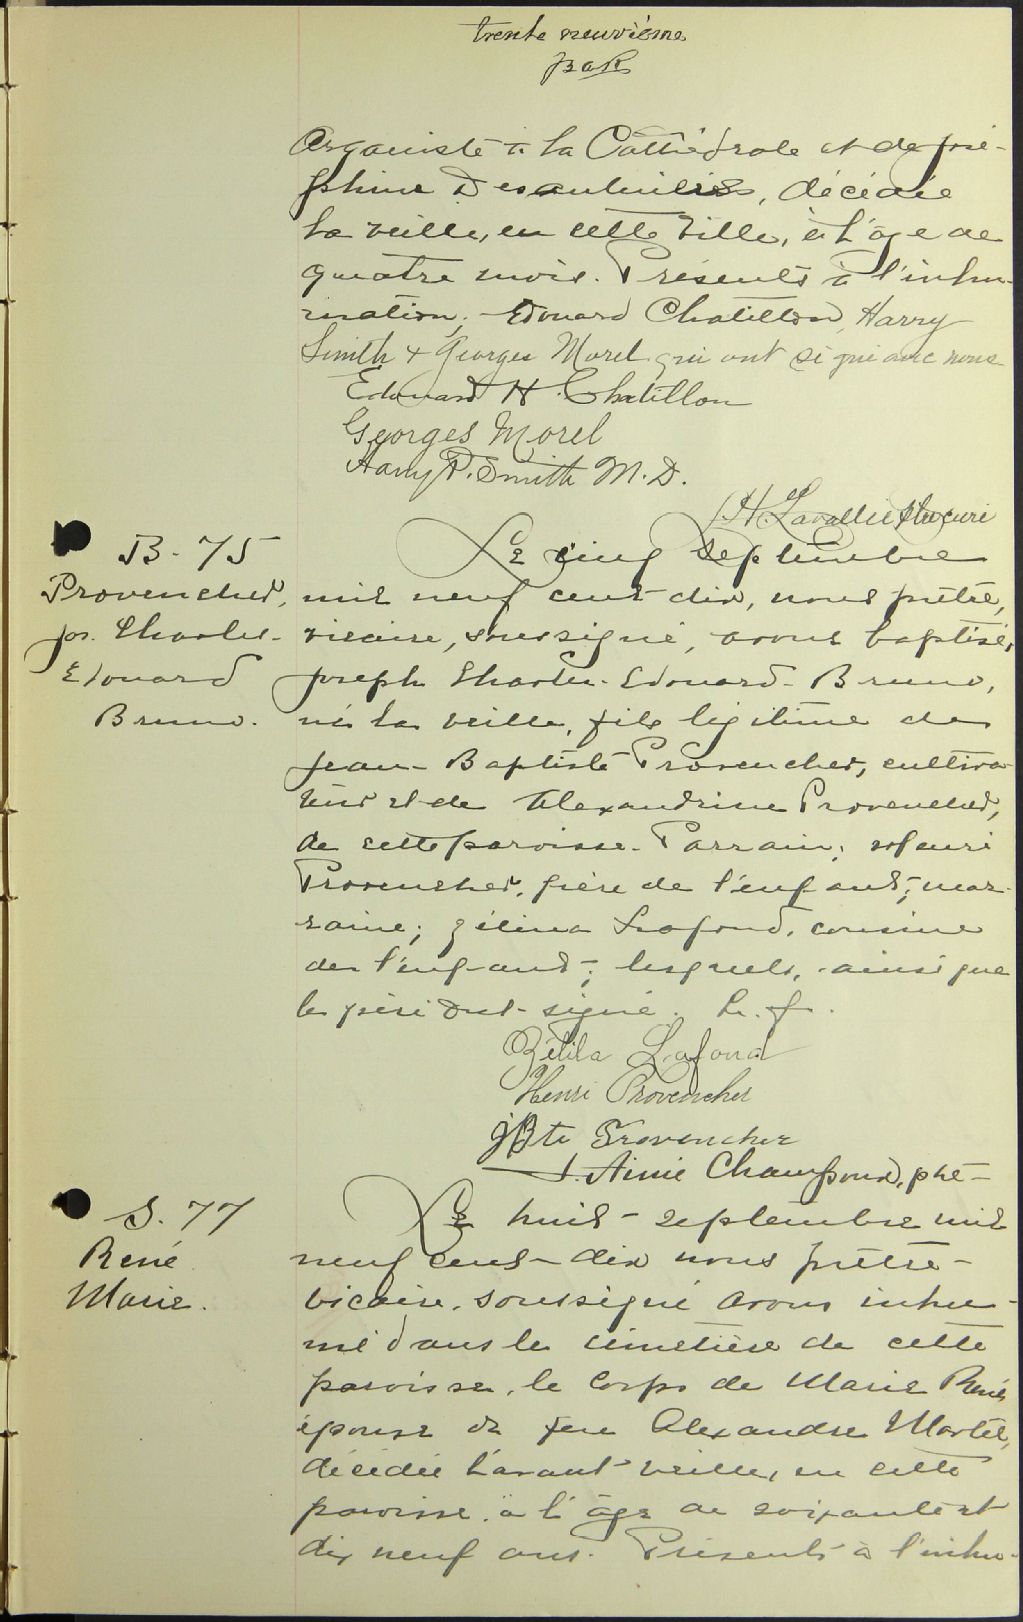 trente neuvième
organiste à la Cathédrale et de José-
phine Desautniers, décédée
la veille, en cette ville, à l'âge de
quatre mois. Présents à l'inhu-
mation, Edouard Chatillon, Harry
Smith & Georges Morel qui ont signé avec nous
Edouard H. Chatillon
Georges Morel
Harry P. Smith M.D.
H Lavallée ptre curé
B. 75
Provencher,
Jos. Charles-
Edouard
Bruno.
Le cinq septembre
mil neuf cent-dix, nous prêtre,
vicaire, soussigné, avons baptisé,
Joseph Charles-Edouard-Bruno,
né la veille, fils légitime de
Jean-Baptiste Provencher, cultiva-
teur et de Alexandrine Provencher,
de cette paroisse. Parrain; Henri
Provencher, frère de l'enfant; mar-
raine; Zélina Lafond, cousine
de l'enfant; lesquels, ainsi que
le père ont signé. L. f.
Zélila Lafond
Henri Provencher
JBte Provencher
J. Aimé Champoux, ptre-
S. 77
René
Marie.
Le huit-septembre mil
neuf cent-dix nous prêtre-
vicaire, soussigné avons inhu-
mé dans le cimetière de cette
paroisse, le corps de Marie René
épouse de feu Alexandre Martel,
décédée l'avant veille, en cette
paroisse. à l'âge de soixante et
dix neuf ans. Présents à l'inhu-